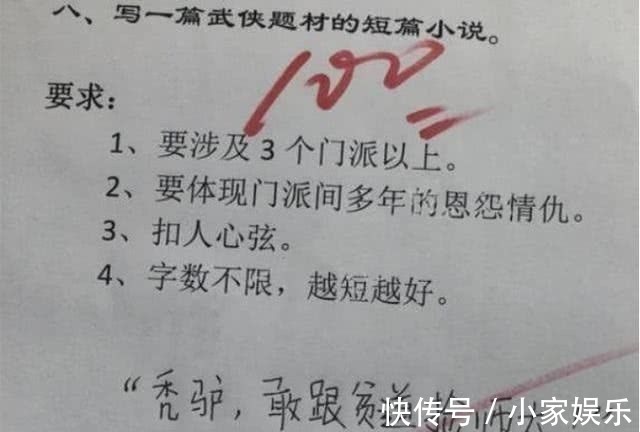 八、写一篇武侠题材的短篇小说。
100
要求：
1、要涉及3个门派以上。
2、要体现门派间多年的恩怨情仇。
3、扣人心弦。
4、字数不限，越短越好。
“秃驴，敢跟贫道
快传号／小家娱乐